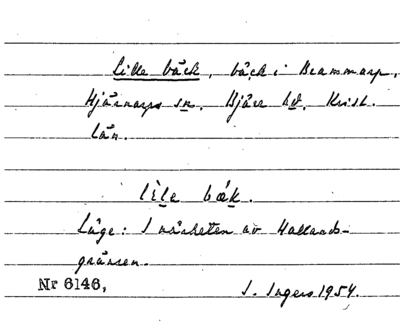 Lille bäck, bäck i Brammarp,
Hjärnarps sn. Bjäre hd. Krist.
län.
lìle bǽk.
Läge: I närheten av Hallands-
gränsen.
Nr 6146, I. Ingers 1954.